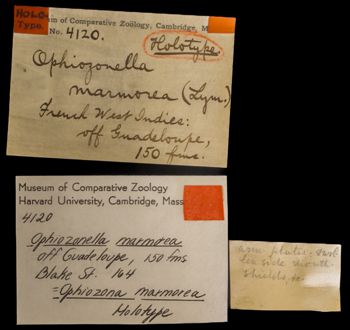 HOLO-
Type.
um of Comparative Zoölogy, Cambridge, M
No. 4120.
Holotype.
Ophiozonella
marmorea (Lym.)
French West Indies:
off Guadeloupe,
150 fms.
Museum of Comparative Zoology
Harvard University, Cambridge, Mass
4120
Ophiozonella marmorea
off Guadeloupe, 150 fms
Blake St. 164
= Ophiozona marmorea
Holotype
arm plates
side mouth
shields,